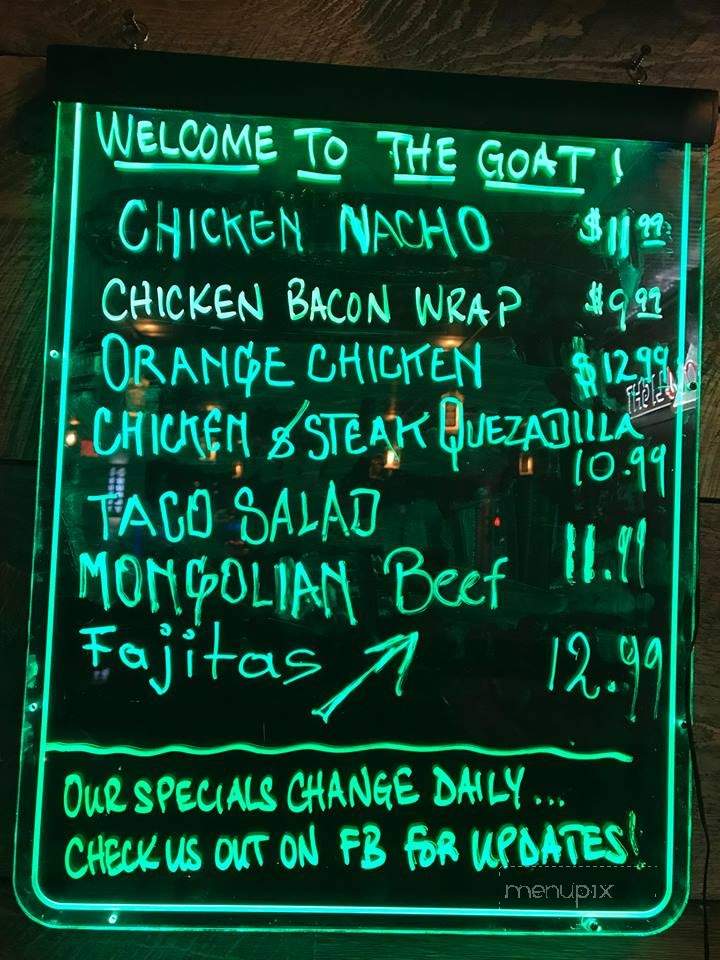 WELCOME TO THE GOAT!
CHICKEN NACHO $11.99
CHICKEN BACON WRAP $9.99
ORANGE CHICKEN $12.99
CHICKEN & STEAK QUEZADILLA
10.99
TACO SALAD
MONGOLIAN Beef 11.99
Fajitas 12.99
OUR SPECIALS CHANGE DAILY...
CHECK US OUT ON FB FOR UPDATES!
menupix